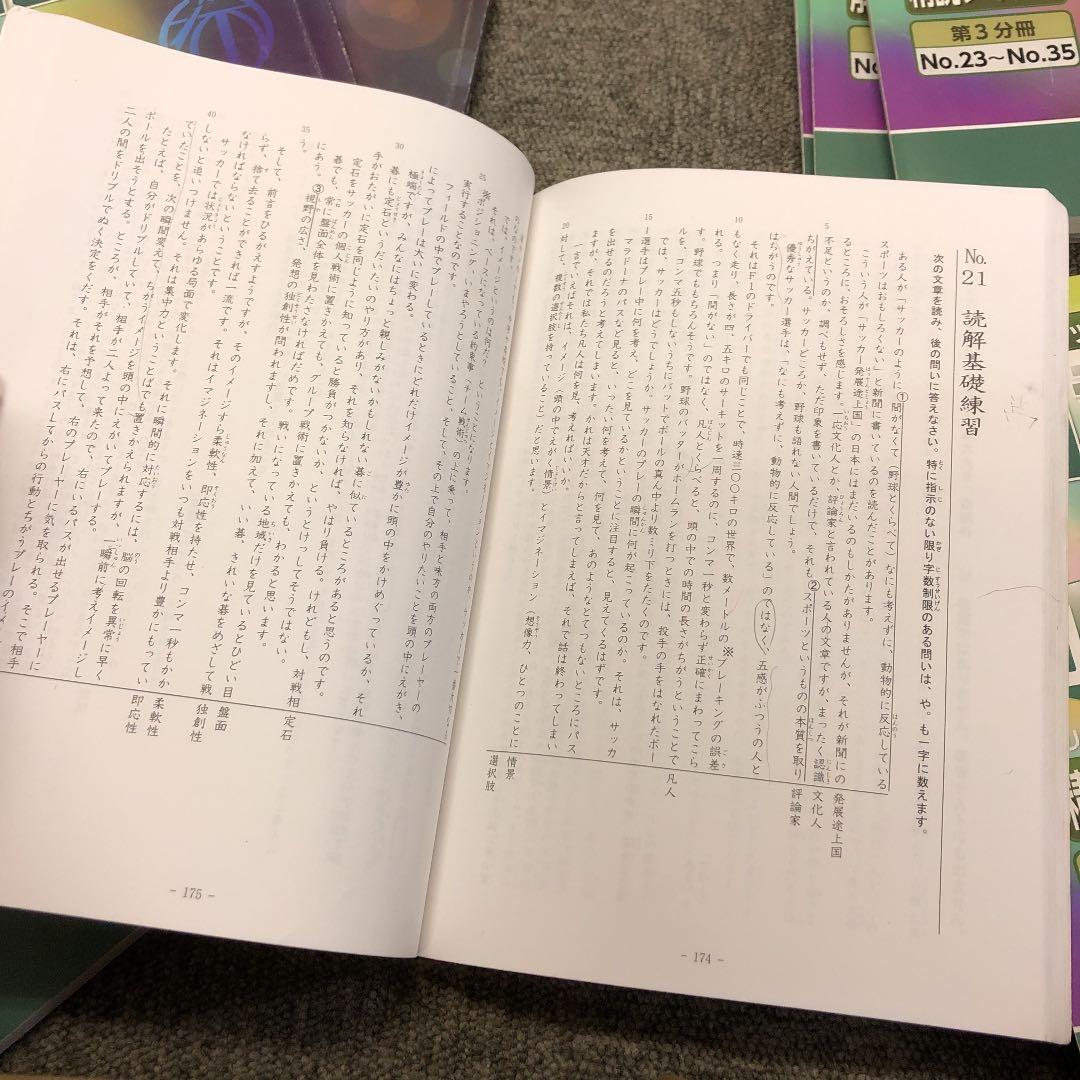 第3分冊
No.23～No.35
No.21　読解基礎練習
次の文章を読み、後の問いに答えなさい。特に指示のない限り字数制限のある問いは、や。も一字に数えます。
ある人が「サッカーのように①間がなくて（野球とくらべて）なにも考えずに、動物的に反応している
スポーツはおもしろくない」と新聞に書いているのを読んだことがあります。
こういう人が「サッカー発展途上国」の日本にはまだいるのもしかたがありませんが、それが新聞にの
るところに、おそろしさを感じます。一応文化人とか、評論家と言われている人の文章ですが、まったく認識
不足というのか、調べもせず、ただ印象を書いているだけで、それも②スポーツというものの本質を取り
ちがえている。サッカーどころか、野球も語れない人間でしょう。
優秀なサッカー選手は、「なにも考えずに、動物的に反応している」のではなく、五感がふつうの人と
はちがうのです。
それはF1のドライバーでも同じことで、時速三〇〇キロの世界で、数メートルの※ブレーキングの誤差
もなく走り、長さが四、五キロのサーキットを一周するのに、コンマ一秒と変わらず正確にまわってこら
れる。つまり「間がない」のではなく、凡人とくらべると、頭の中での時間の長さがちがうということで
す。野球でももちろんそうです。野球のバッターがホームランを打つときには、投手の手をはなれたボー
ルを、コンマ五秒もしないうちにバットでボールの真ん中より数ミリ下をたたくのです。
では、サッカーはどうでしょうか。サッカーのプレーの瞬間に何が起こっているのか。それは、サッカ
ー選手はプレー中に何を考え、どこを見ているかということに注目すると、見えてくるはずです。
マラドーナのパスなど見ると、いったい何を考えて、何を見て、あのようなとてつもないところにパス
を出せるのだろうと考えてしまいます。かれは天才だからと言ってしまえば、それで話は終わってしまい
ますが、それでは私たち凡人は何を見、考えればいいか。
一言でいえばそれは、イメージ（頭の中でえがく情景）とイマジネーション（想像力、ひとつのことに
対して、複数の選択肢を持っていること）だと思います。
5
10
15
20
発展途上国
文化人
評論家
凡人
情景
選択肢
- 174 -
では、イメージというのは何だ？　ということになります。
それは、ベースになっている約束事（チーム戦術）の上に乗って、相手と味方の両方のプレーヤーの
※ポジショニング、いまやろうとしていること、そして、その上で自分のやりたいことを頭の中にえがき、
実行することなのです。
フィールドの中でプレーしているときにどれだけイメージが豊かに頭の中をかけめぐっているか、それ
によってプレーは大いに変わる。
極端ですが、みんなにはちょっと親しみがないかもしれない、碁に似ているところがあると思うのです。
碁にも定石というだいたいのやり方があり、それを知らなければ、やはり負ける。けれどもし、対戦相
手がおたがいに定石を同じように知っていると勝負がつかないか、というとけっしてそうではない。
定石をサッカーの個人戦術に置きかえても、グループ戦術に置きかえても、わかると思います。
碁でも、常に盤面全体を見わたさなければだめです。戦いになっている地域だけを見ているとひどい目
にあう。③視野の広さ、発想の独創性が問われますし、それに加えて、いい碁、きれいな碁をめざして戦
う。
そして、前言をひるがえすようですが、そのイメージすら柔軟性、即応性を持たせ、コンマ一秒もかか
らず、捨て去ることができれば一流です。それはイマジネーションをいつも対戦相手より豊かにもってい
なければならないということです。
サッカーでは状況があらゆる局面で変化します。それに瞬間的に対応するには、脳の回転を異常に早く
しないと追いつけません。それは集中力ということばでも置きかえられますが、一瞬前に考えイメージし
ていたことを、次の瞬間変えて、ちがうイメージを頭の中にえがいてプレーする。
たとえば、自分がドリブルしていて、相手が二人よって来たので、右にいるパスが出せるプレーヤーに
ボールを出そうとする。ところが、相手がそれを予想して、右のプレーヤーに気を取られる。そこで相手
二人の間をドリブルでぬく決定をくだす。それは、右にパスしてからの行動とちがうプレーのイメ
25
30
35
40
定石
盤面
独創性
柔軟性
即応性
- 175 -